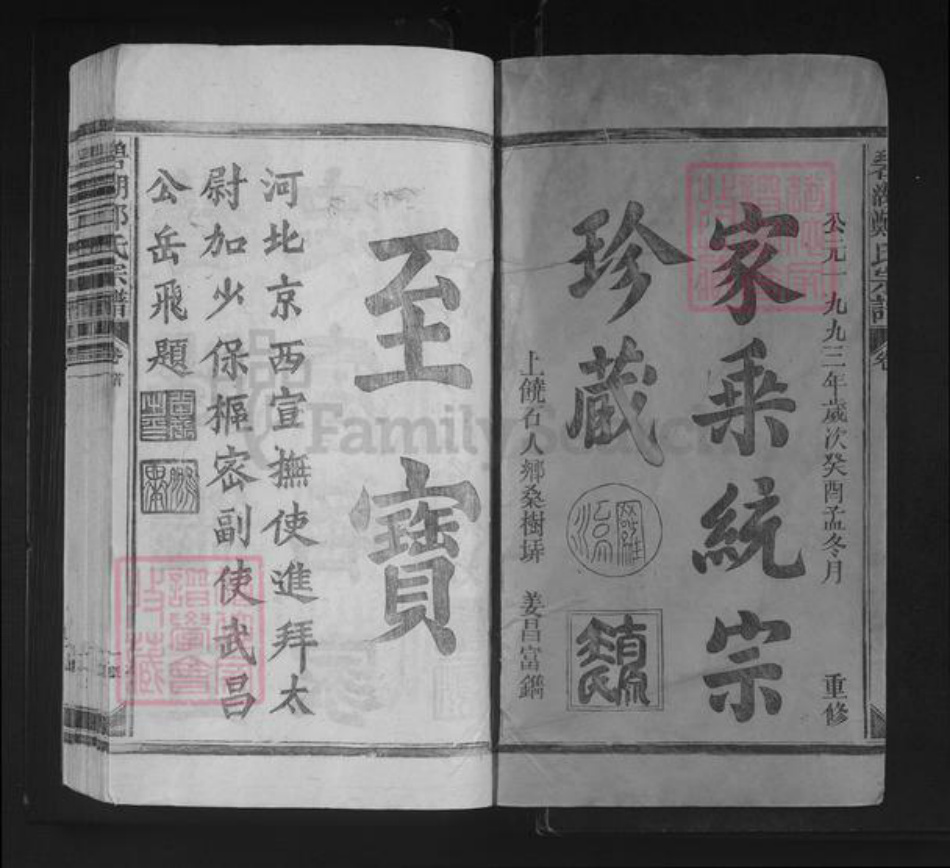 公元一九九三年歲次癸酉孟冬月 重修
家乘統宗
珍藏
上饒石人鄉桑樹塝 姜昌富鐫
至寶
河北京西宣撫使進拜太
尉加少保樞密副使武昌
公岳飛題
氏宗譜
FamilySearch